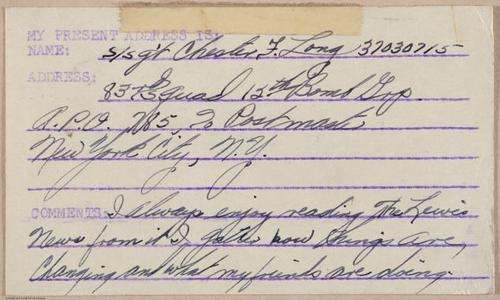 MY PRESENT ADDRESS IS:
NAME: S/Sgt Chester F. Long 37030715
ADDRESS:
83rd Squad 12th Bomb Grp.
A.P.O. 785 % Postmaster
New York City, N.Y.
COMMENTS: I always enjoy reading The Lewis
News from it I gather how things are,
Changing and what my friends are doing.